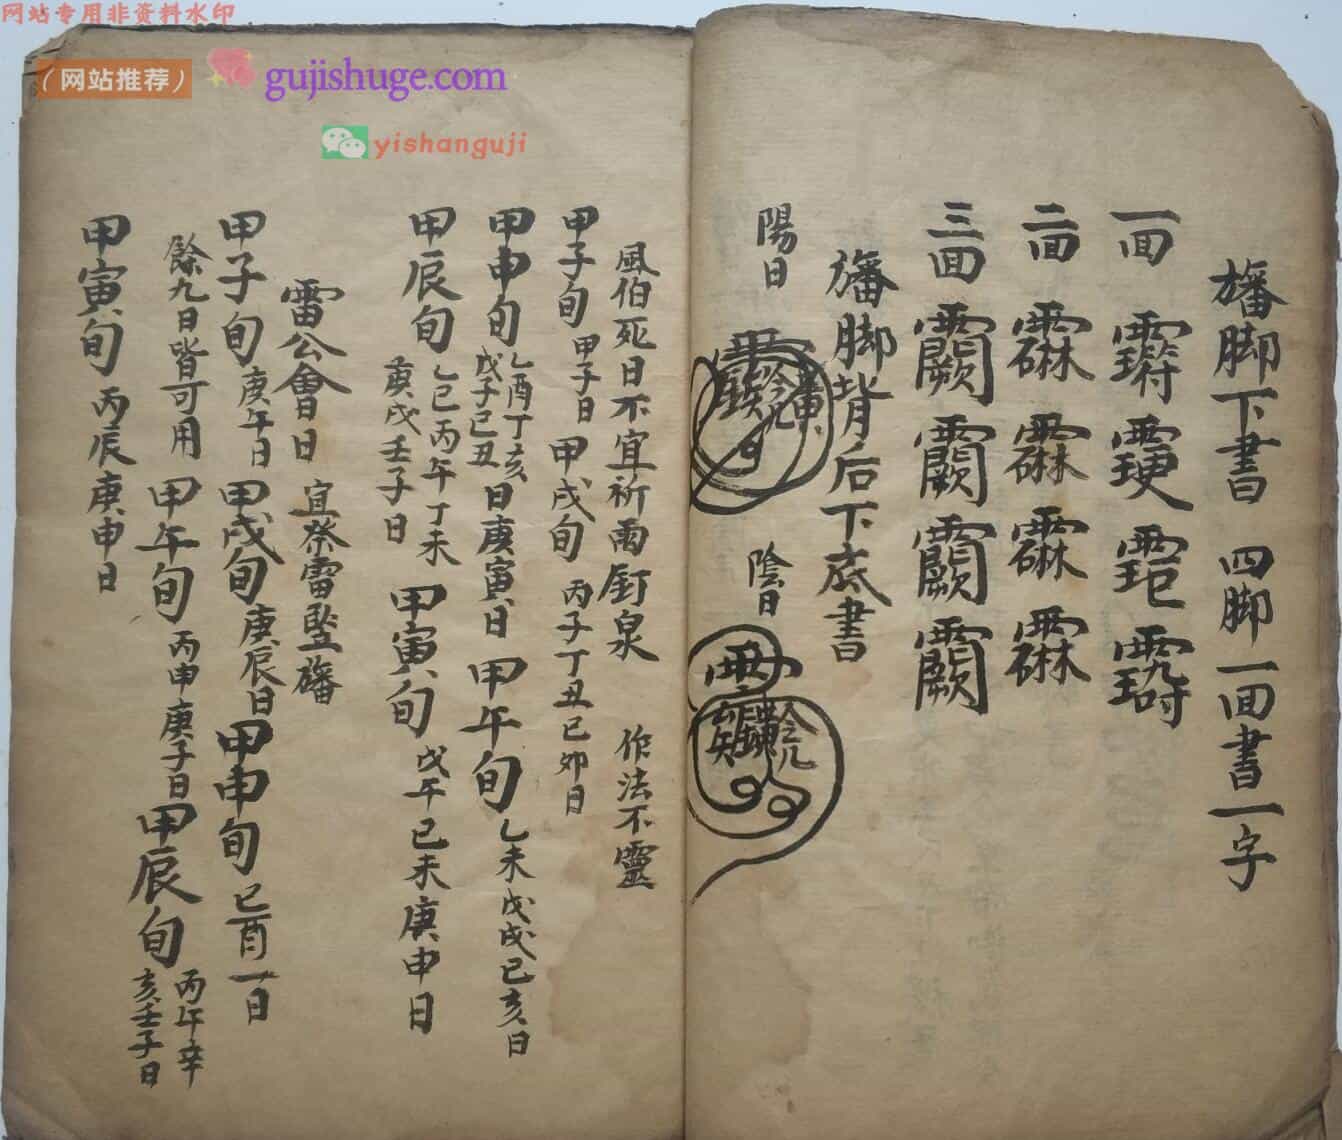 网站专用非资料水印
（网站推荐）
gujishuge.com
yishanguji
旛脚下書 四脚一面書一字
一面
二面
三面
旛脚背后下底書
陽日
陰日
風伯死日不宜祈雨釘泉 作法不靈
甲子旬 甲子日 甲戌旬 丙子丁丑己卯日
甲申旬 乙酉丁亥
戊子己丑
日庚寅日 甲午旬 乙未戊戌己亥日
甲辰旬 乙巳丙午丁未
庚戌壬子日
甲寅旬 戊午己未庚申日
雷公會日 宜祭雷竪旛
甲子旬 庚午日 甲戌旬 庚辰日 甲申旬 己酉一日
餘九日皆可用 甲午旬 丙申庚子日 甲辰旬 丙午辛
亥壬子日
甲寅旬 丙辰庚申日